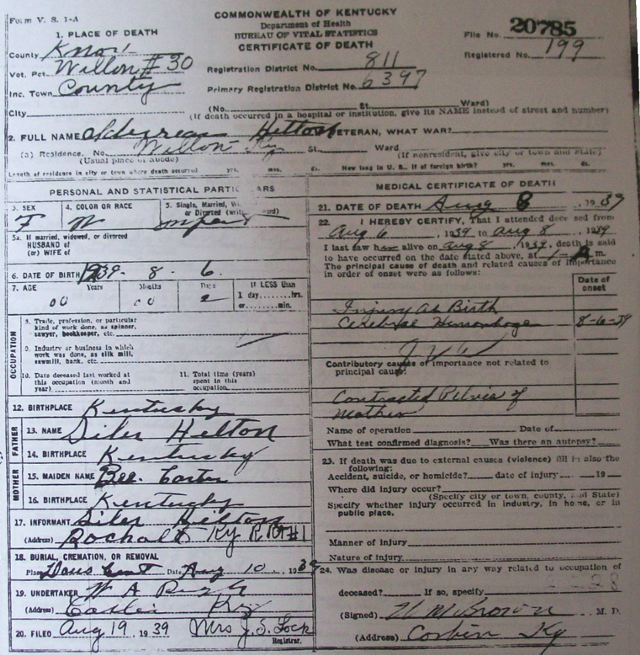 Form V. S. 1-A
COMMONWEALTH OF KENTUCKY
Department of Health
BUREAU OF VITAL STATISTICS
CERTIFICATE OF DEATH
File No. 20785
Registered No. 199
1. PLACE OF DEATH
County Knox
Vot. Pct. Willow #30
Inc. Town County
City
Registration District No. 811
Primary Registration District No. 6397
(No. St. Ward)
(If death occurred in a hospital or institution, give its NAME instead of street and number)
2. FULL NAME Hilton VETERAN, WHAT WAR?
(a) Residence. No. Willow Ky St. Ward
(Usual place of abode) (If nonresident, give city or town and State)
Length of residence in city or town where death occurred yrs. mos. ds. How long in U. S., if of foreign birth? yrs. mos. ds.
PERSONAL AND STATISTICAL PARTIC ARS
3. SEX F
4. COLOR OR RACE W
5. Single, Married, W or Divorced (write word)
5a. If married, widowed, or divorced
HUSBAND of
(or) WIFE of
6. DATE OF BIRTH 1939 - 8 - 6
7. AGE 00 Years 00 Months 2 Days
If LESS than
1 day, hrs.
or min.
OCCUPATION
8. Trade, profession, or particular
kind of work done, as spinner,
sawyer, bookkeeper, etc.
9. Industry or business in which
work was done, as silk mill,
sawmill, bank, etc.
10. Date deceased last worked at
this occupation (month and
year)
11. Total time (years)
spent in this
occupation
12. BIRTHPLACE Kentucky
FATHER
13. NAME Siler Hilton
14. BIRTHPLACE Kentucky
MOTHER
15. MAIDEN NAME Bee Carter
16. BIRTHPLACE Kentucky
17. INFORMANT Siler Hilton
(Address) Ky R #1
18. BURIAL, CREMATION, OR REMOVAL
Place Date Aug 10, 1939
19. UNDERTAKER W A
(Address) Ky
20. FILED Aug 19 1939 Mrs J. S. Lock
Registrar.
MEDICAL CERTIFICATE OF DEATH
21. DATE OF DEATH Aug 8, 1939
22. I HEREBY CERTIFY, That I attended deceased from
Aug 6, 1939 to Aug 8, 1939
I last saw her alive on Aug 8, 1939, death is said
to have occurred on the date stated above, at 1 A m.
The principal cause of death and related causes of importance
in order of onset were as follows:
Date of
onset
Injury at Birth
Cerebral Hemorrhage 8-6-39
Contributory causes of importance not related to
principal cause:
Contracted Pelvis of
Mother
Name of operation Date of
What test confirmed diagnosis? Was there an autopsy?
23. If death was due to external causes (violence) fill in also the
following:
Accident, suicide, or homicide? date of injury 19
Where did injury occur?
(Specify city or town, county, and State)
Specify whether injury occurred in industry, in home, or in
public place.
Manner of injury
Nature of injury
24. Was disease or injury in any way related to occupation of
deceased? If so, specify
(Signed) Brown M. D.
(Address) Corbin Ky